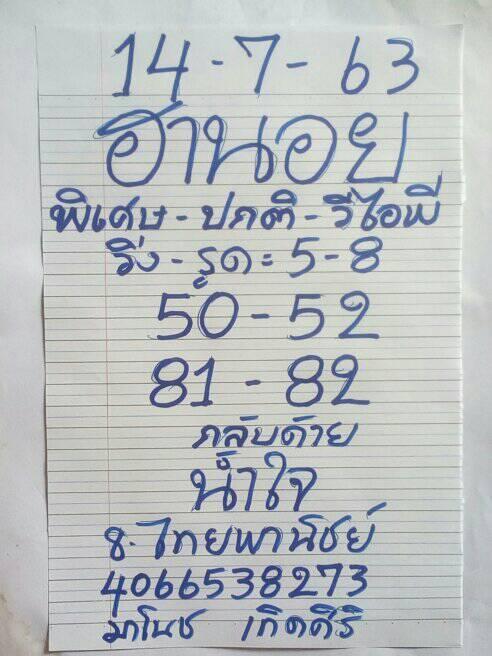 14-7-63
ฮานอย
พิเศษ-ปกติ-วีไอพี
วิ่ง-รูด=5-8
50-52
81-82
กลับด้วย
น้ำใจ
ธ.ไทยพานิชย์
4066538273
มาโนช เกิดคีรี